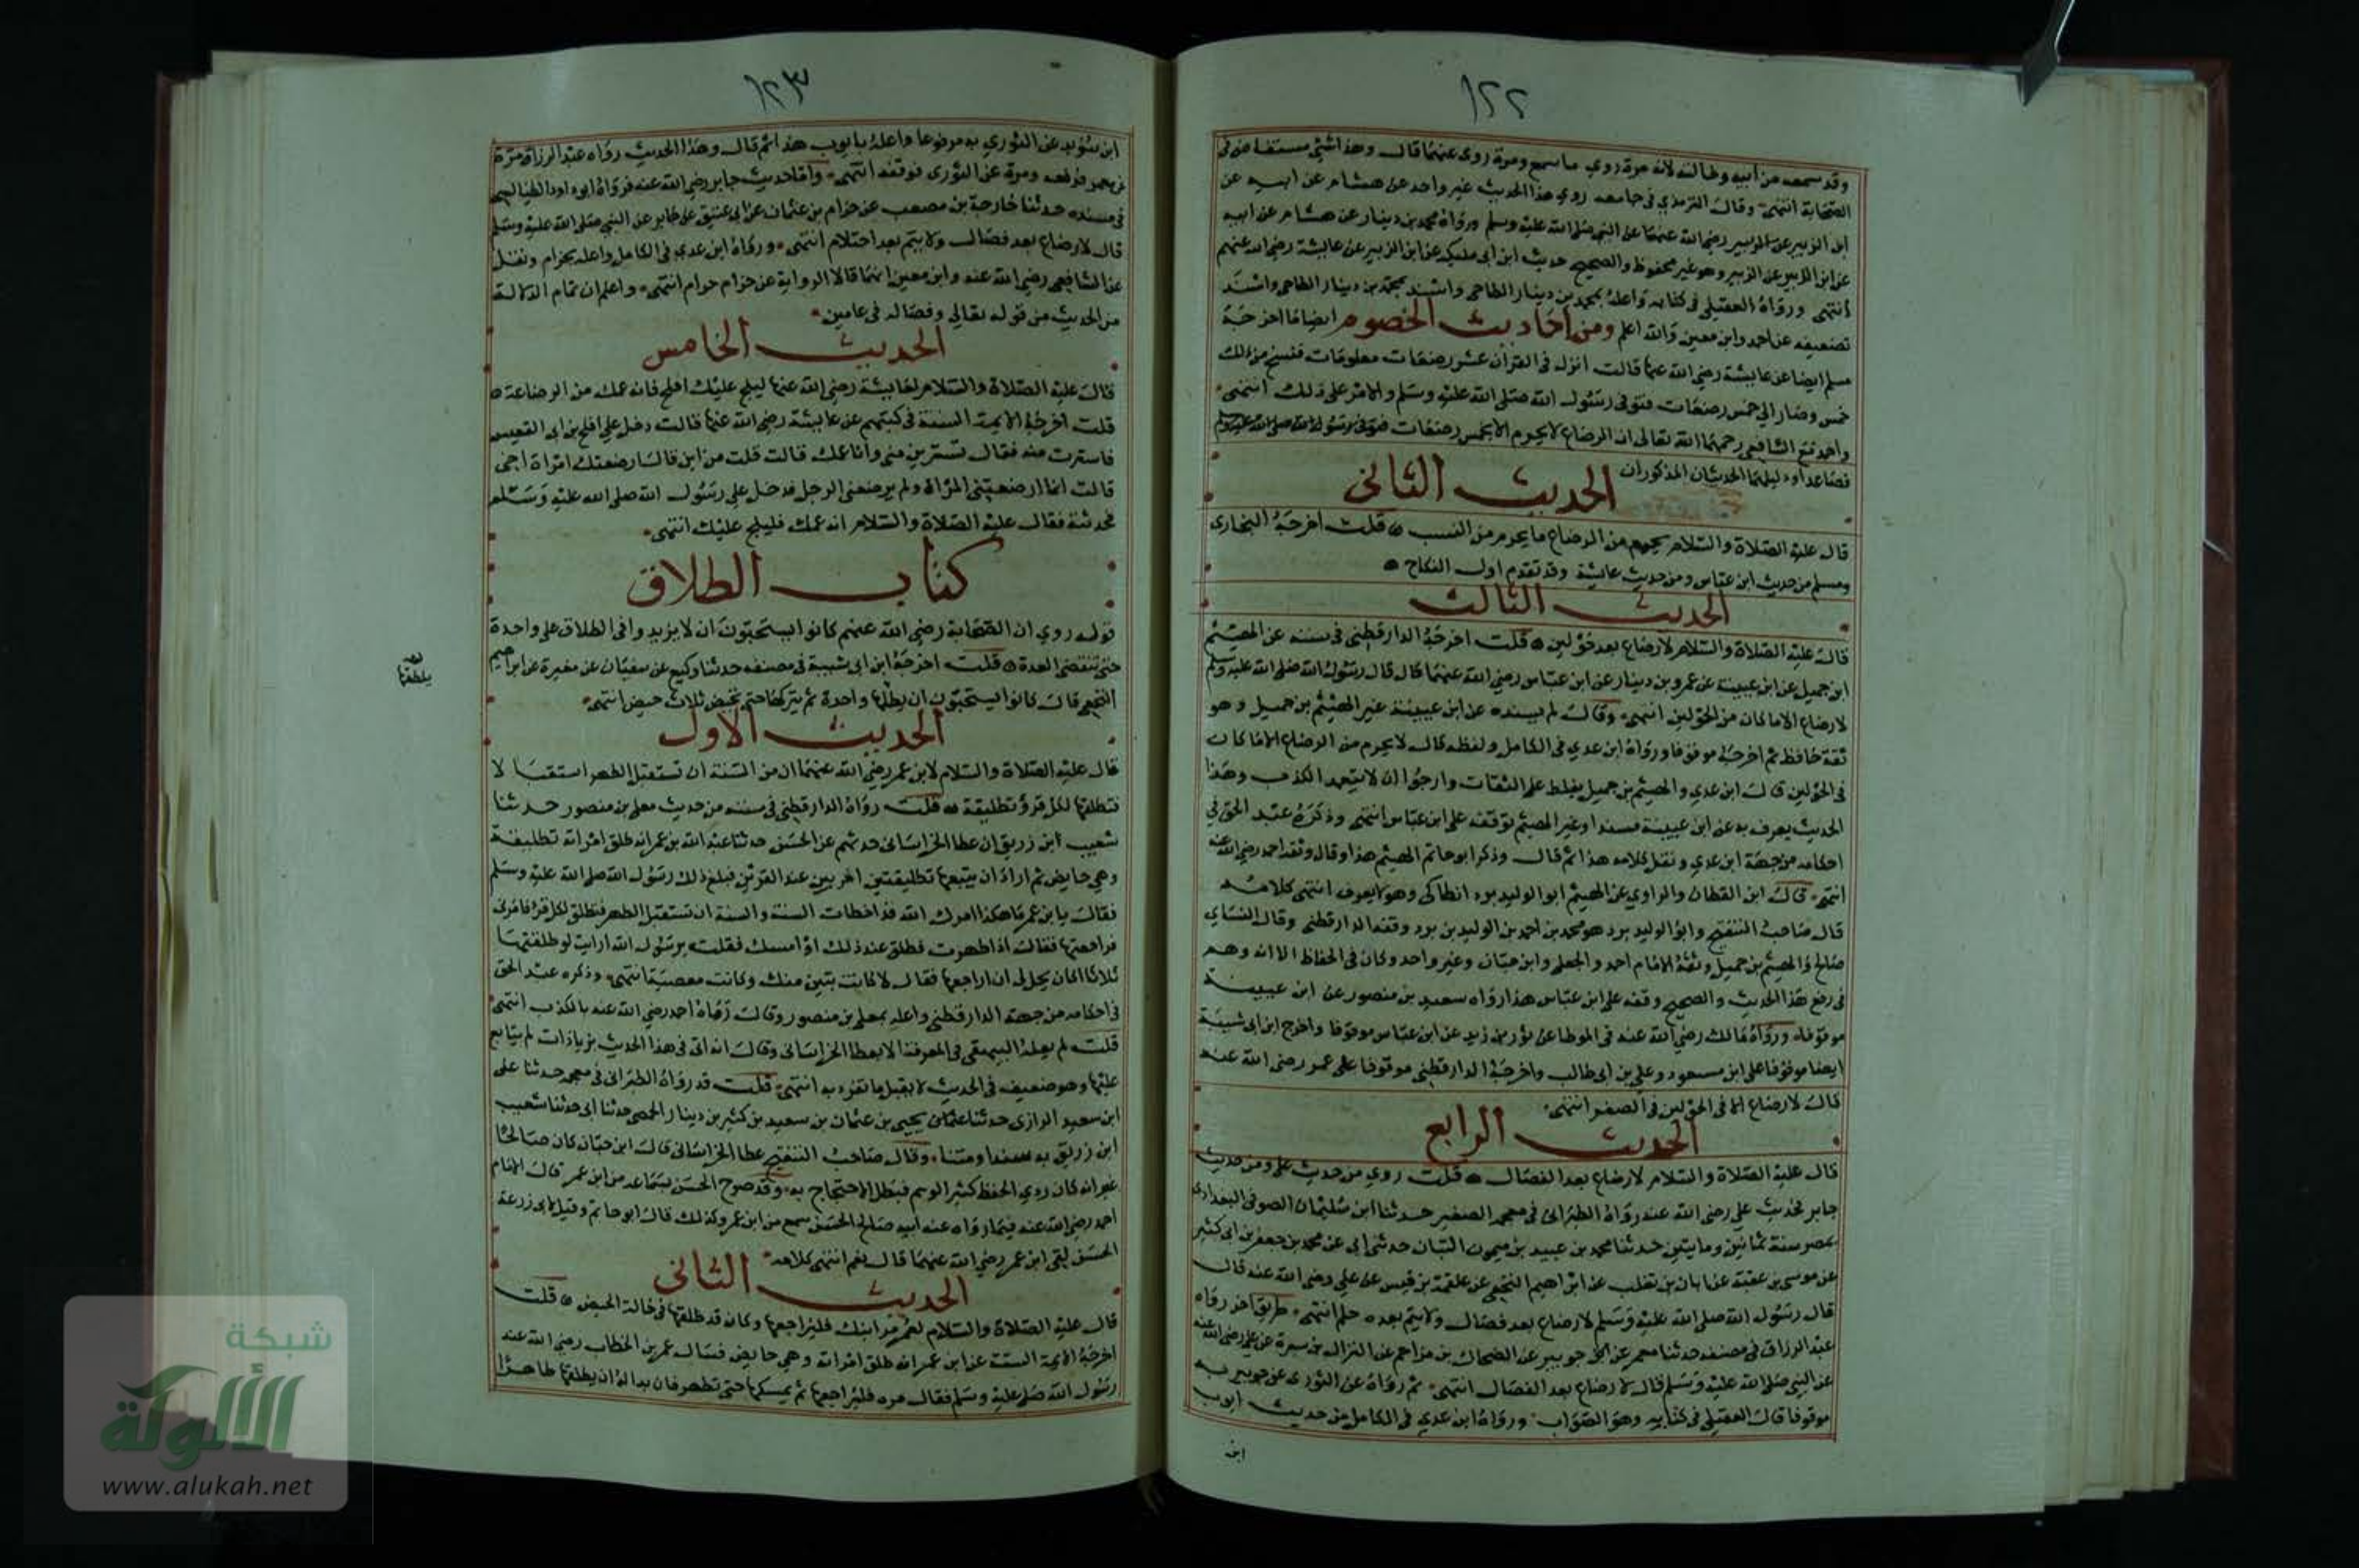 ١٢٢
وقد سمعه من ابيه وخالته لانه مرة روي ما سمع ومرة روى عنهما قال وهذا شئ مستفاض في
الصحابة انتهى وقال الترمذي في جامعه روي هذا الحديث غير واحد عن هشام عن ابيه عن
ابن الزبير عن الزبير رضي الله عنهما عن النبي صلى الله عليه وسلم ورواه محمد بن دينار عن هشام عن ابيه
عن ابن الزبير عن الزبير وهو غير محفوظ والصحيح حديث ابن ابي مليكه عن ابن الزبير عن عايشة رضي الله عنهم
انتهى ورواه العقيلي في كتابه واعله بمحمد بن دينار الطاحي واسند
تضعيفه عن احمد وابن معين والله اعلم ومن احاديث الخصوم ايضا ما اخرجه
مسلم ايضا عن عايشة رضي الله عنها قالت انزل في القران عشر رضعات معلومات فنسخ من ذلك
خمس وصار الي خمس رضعات فتوفى رسول الله صلى الله عليه وسلم والامر على ذلك انتهى
واحمد مع الشافعي رحمهما الله تعالى ان الرضاع لا يحرم الا بخمس رضعات
فصاعدا ودليلهما الحديثان المذكوران
الحديث الثاني
قال عليه الصلاة والسلام يحرم من الرضاع ما يحرم من النسب قلت اخرجه البخارى
ومسلم من حديث ابن عباس ومن حديث عايشة وقد تقدم اول النكاح
الحديث الثالث
قال عليه الصلاة والسلام لا رضاع بعد حولين قلت اخرجه الدارقطني في سننه عن الهيثم
ابن جميل عن ابن عيينة عن عمرو بن دينار عن ابن عباس رضي الله عنهما قال قال رسول الله صلى الله عليه وسلم
لا رضاع الا ما كان من الحولين انتهى وقال لم يسنده عن ابن عيينة غير الهيثم بن جميل وهو
ثقة حافظ ثم اخرجه موقوفا ورواه ابن عدي في الكامل ولفظه قال لا يحرم من الرضاع الا ما كان
في الحولين قال ابن عدي والهيثم بن جميل يغلط على الثقات وارجوا ان لا يتعمد الكذب وهذا
الحديث يعرف به عن ابن عيينة مسندا وغير الهيثم يوقفه على ابن عباس انتهى وذكره عبد الحق في
احكامه من جهة ابن عدي ونقل كلامه هذا ثم قال وذكر ابو حاتم الهيثم هذا وقال وثقه احمد رضي الله عنه
انتهى قال ابن القطان والراوي عن الهيثم ابو الوليد برد انطاكى وهو لا يعرف انتهى كلامه
قال صاحب التنقيح وابو الوليد برد هو محمد بن احمد بن الوليد بن برد وثقه الدارقطني وقال النساي
صالح والهيثم بن جميل وثقه الامام احمد والعجلي وابن حبان وغير واحد وكان في الحفاظ الا انه وهم
في رفع هذا الحديث والصحيح وقفه على ابن عباس هذا رواه سعيد بن منصور عن ابن عيينة
موقوفا ورواه مالك رضي الله عنه في الموطا عن ثور بن زيد عن ابن عباس موقوفا واخرج ابن ابي شيبة
ايضا موقوفا على ابن مسعود وعلي بن ابي طالب واخرجه الدارقطني موقوفا على عمر رضي الله عنه
قال لا رضاع الا في الحولين في الصغر انتهى
الحديث الرابع
قال عليه الصلاة والسلام لا رضاع بعد الفصال قلت روي من حديث على ومن حديث
جابر فحديث علي رضي الله عنه رواه الطبراني في معجمه الصغير حدثنا ابن سليمان الصوفي البغدادى
بمصر سنة ثمانين ومايتين حدثنا محمد بن عبيد بن ميمون التبان حدثني ابي عن محمد بن جعفر بن ابى كثير
عن موسى بن عقبة عن ابان بن تغلب عن ابراهيم النخعى عن علقمة بن قيس عن علي رضي الله عنه قال
قال رسول الله صلى الله عليه وسلم لا رضاع بعد فصال ولا يتم بعد حلم انتهى طريق اخر رواه
عبد الرزاق في مصنفه حدثنا معمر عن جويبر عن الضحاك بن مزاحم عن النزال بن سبرة عن على رضى الله عنه
عن النبي صلى الله عليه وسلم قال لا رضاع بعد الفصال انتهى ثم رواه عن الثورى عن جويبر به
موقوفا قال العقيلي في كتابه وهو الصواب ورواه ابن عدي في الكامل من حديث ايوب
ابن
١٢٣
ابن سويد عن الثوري به مرفوعا واعله بايوب هذا ثم قال وهذا الحديث رواه عبد الرزاق مرة
عن معمر فرفعه ومرة عن الثورى فوقفه انتهى واما حديث جابر رضي الله عنه فرواه ابو داود الطيالسى
في مسنده حدثنا خارجة بن مصعب عن حرام بن عثمان عن ابى عتيق عن جابر عن النبي صلى الله عليه وسلم
قال لا رضاع بعد فصال ولا يتم بعد احتلام انتهى ورواه ابن عدي في الكامل واعله بحرام ونقل
عن الشافعي رضي الله عنه وابن معين انهما قالا الرواية عن حرام حرام انتهى واعلم ان تمام الدلالة
من الحديث من قوله تعالى وفصاله في عامين
الحديث الخامس
قال عليه الصلاة والسلام لعايشة رضي الله عنها ليلج عليك افلح فانه عمك من الرضاعة
قلت اخرجه الايمة الستة في كتبهم عن عايشة رضي الله عنها قالت دخل علي افلح بن ابى القعيس
فاسترت منه فقال تسترين مني وانا عمك قالت قلت من اين قال ارضعتك امراة اخى
قالت انما ارضعتنى المراة ولم يرضعنى الرجل فدخل على رسول الله صلى الله عليه وسلم
فحدثته فقال عليه الصلاة والسلام انه عمك فليلج عليك انتهى
كتاب الطلاق
قوله روي ان الصحابة رضي الله عنهم كانوا يستحبون ان لا يزيدوا في الطلاق على واحدة
حتى تنقضى العدة قلت اخرجه ابن ابى شيبة في مصنفه حدثنا وكيع عن سفيان عن مغيرة عن ابراهيم
النخعي قال كانوا يستحبون ان يطلها واحدة ثم يتركها حتى تحيض ثلاث حيض انتهى
يطلقها
الحديث الاول
قال عليه الصلاة والسلام لابن عمر رضي الله عنهما ان من السنة ان تستقبل الطهر استقبالا
فتطلقها لكل قرؤ تطليقة قلت رواه الدارقطني في سننه من حديث معلى بن منصور حدثنا
شعيب ابن زريق ان عطا الخراساني حدثهم عن الحسن حدثنا عبد الله بن عمر انه طلق امراته تطليقة
وهي حايض ثم اراد ان يتبعها تطليقتين اخريين عند القرئين فبلغ ذلك رسول الله صلى الله عليه وسلم
فقال يا ابن عمر ما هكذا امرك الله قد اخطات السنة والسنة ان تستقبل الطهر فتطلق لكل قرؤ فامرنى
فراجعتها فقال اذا طهرت فطلق عند ذلك او امسك فقلت يرسول الله ارايت لو طلقتها
ثلاثا اكان يحل لي ان اراجعها فقال لا كانت تبين منك وكانت معصية انتهى وذكره عبد الحق
في احكامه من جهة الدارقطني واعله بمعلى بن منصور وقال رماه احمد رضي الله عنه بالكذب انتهى
قلت لم يعله البيهقى في المعرفة الا بعطا الخراسانى وقال انه اتى في هذا الحديث بزيادات لم يتابع
عليها وهو ضعيف في الحديث لا يقبل ما تفرد به انتهى قلت قد رواه الطبراني في معجمه حدثنا على
ابن سعيد الرازى حدثنا يحيى بن عثمان بن سعيد بن كثير بن دينار الحمصى حدثنا ابي حدثنا شعيب
ابن زريق به سندا ومتنا وقال صاحب التنقيح عطا الخراساني قال ابن حبان كان صالحا
غير انه كان ردي الحفظ كثير الوهم فبطل الاحتجاج به وقد صرح الحسن بسماعه من ابن عمر قال الامام
احمد رضي الله عنه فيما رواه عنه ابنه صالح الحسن سمع من ابن عمر وكذلك قال ابو حاتم وقيل لابى زرعة
الحسن لقى ابن عمر رضي الله عنهما قال نعم انتهى كلامه
الحديث الثاني
قال عليه الصلاة والسلام لعمر مر ابنك فليراجعها وكان قد طلقها في حالة الحيض قلت
اخرجه الايمة الستة عن ابن عمر انه طلق امراته وهي حايض فسال عمر بن الخطاب رضي الله عنه
رسول الله صلى عليه وسلم فقال مره فليراجعها ثم يمسكها حتى تطهر فان بدا له ان يطلقها طاهرا
شبكة
الألوكة
www.alukah.net